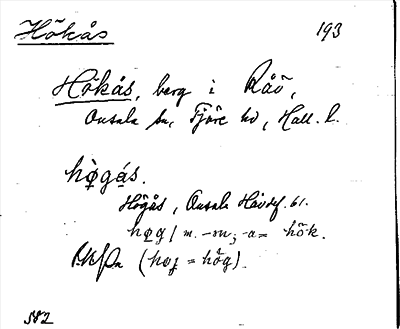 Hökås 193
Hökås, berg i Råö,
Onsala sn, Fjäre hd, Hall. l.
hø̀gás.
Högås, Onsala Hävdef. 61.
høg / m. -ɯ; -a = hök.
(høg = hög).
582